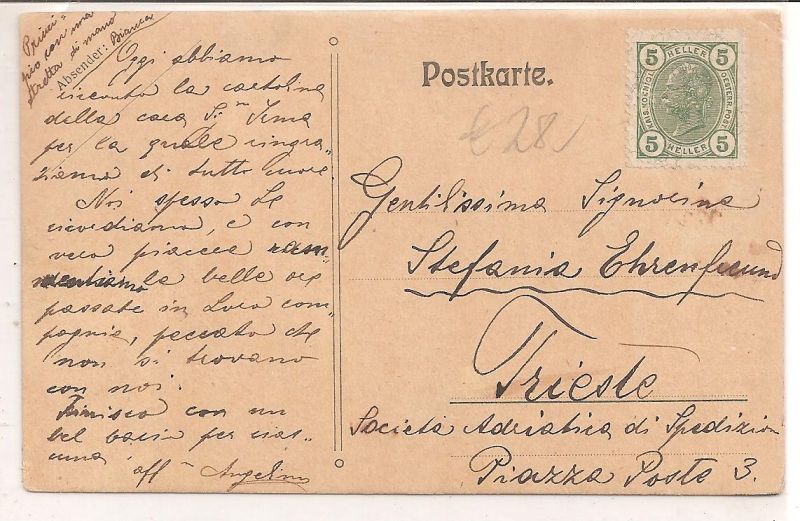 Princi=
pio con una
stretta di mano
Absender: Bianca
Oggi abbiamo
ricevuto la cartolina
della cara Sig.na Irma
per la quale ringra=
ziamo di tutto cuore.
Noi spesso Le
ricordiamo, e con
vero piacere ram=
mentiamo le belle ore
passate in Loro com=
pagnia, peccato che
non si trovano
con noi.
Finisco con un
bel bacio per cias=
cuna
aff Angelina
Postkarte.
€ 28
5 HELLER 5
KAIS. KOENIGL. OESTERR. POST
5 HELLER 5
Gentilissima Signorina
Stefania Ehrenfreund
Trieste
Società Adriatica di Spedizioni
Piazza Poste 3.